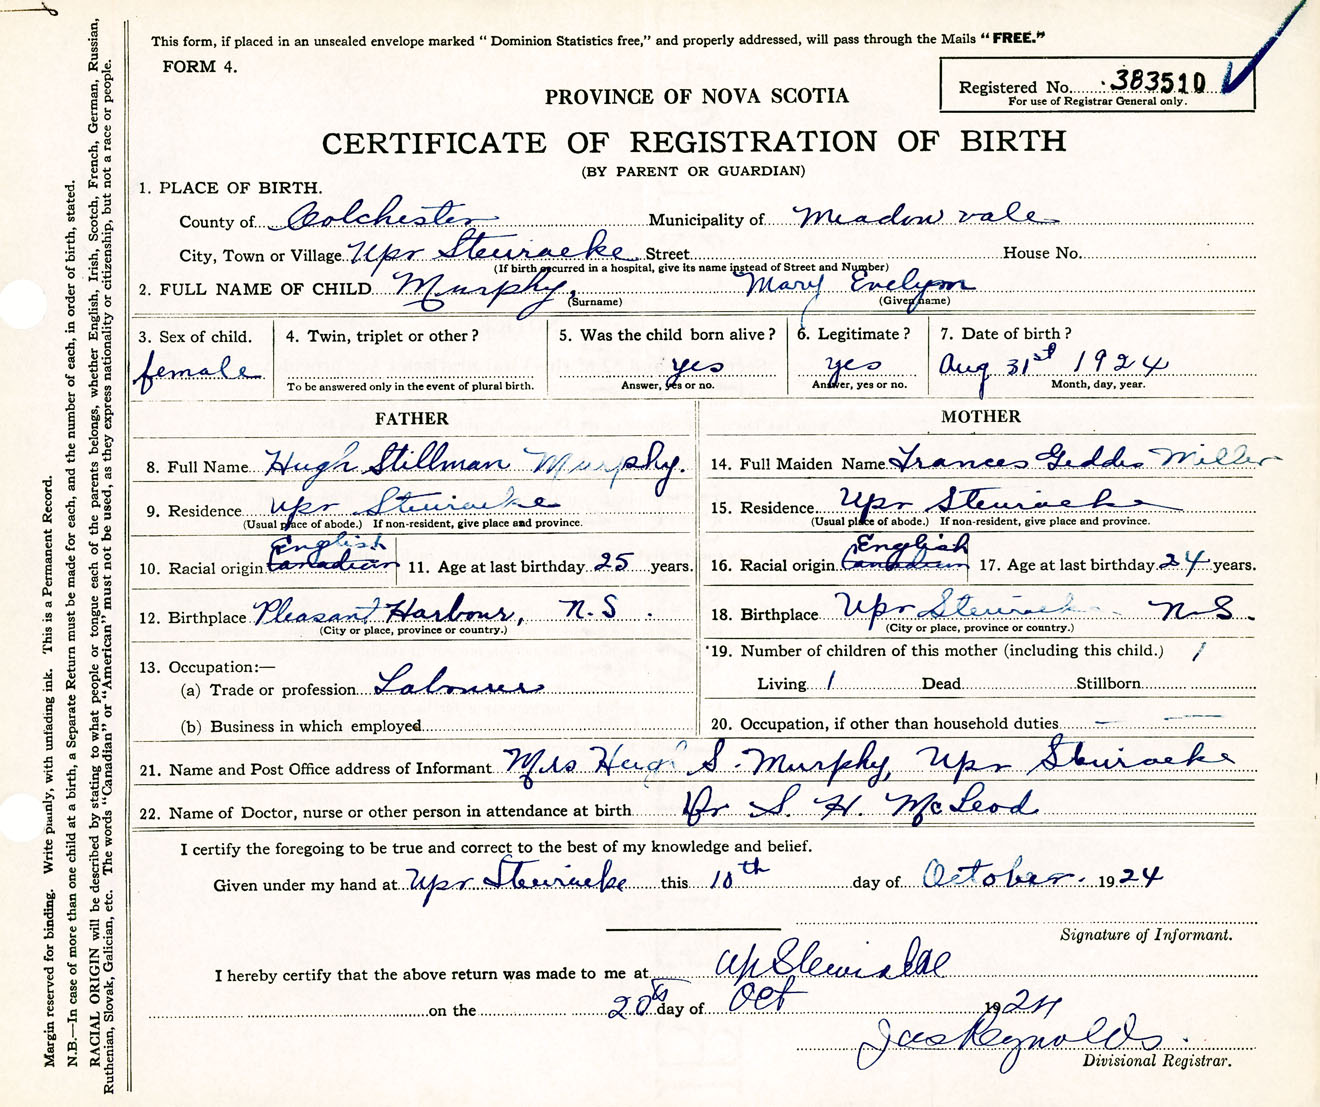 This form, if placed in an unsealed envelope marked "Dominion Statistics free," and properly addressed, will pass through the Mails "FREE."
FORM 4.
Registered No. 383510
For use of Registrar General only.
PROVINCE OF NOVA SCOTIA
CERTIFICATE OF REGISTRATION OF BIRTH
(BY PARENT OR GUARDIAN)
1. PLACE OF BIRTH.
County of Colchester Municipality of Meadowvale
City, Town or Village Upr Stewiacke Street House No.
(If birth occurred in a hospital, give its name instead of Street and Number)
2. FULL NAME OF CHILD Murphy, Mary Evelynn
(Surname) (Given name)
3. Sex of child. 4. Twin, triplet or other? 5. Was the child born alive? 6. Legitimate? 7. Date of birth?
female yes yes Aug 31st 1924
To be answered only in the event of plural birth. Answer, yes or no. Answer, yes or no. Month, day, year.
FATHER MOTHER
8. Full Name Hugh Stillman Murphy. 14. Full Maiden Name Frances Geddes Miller
9. Residence Upr Stewiacke 15. Residence Upr Stewiacke
(Usual place of abode.) If non-resident, give place and province. (Usual place of abode.) If non-resident, give place and province.
English English
10. Racial origin Canadian 11. Age at last birthday 25 years. 16. Racial origin Canadian 17. Age at last birthday 24 years.
12. Birthplace Pleasant Harbour, N.S. 18. Birthplace Upr Stewiacke N.S.
(City or place, province or country.) (City or place, province or country.)
13. Occupation:— 19. Number of children of this mother (including this child.) 1
(a) Trade or profession Labourer Living 1 Dead Stillborn
(b) Business in which employed 20. Occupation, if other than household duties — —
21. Name and Post Office address of Informant Mrs Hugh S. Murphy, Upr Stewiacke
22. Name of Doctor, nurse or other person in attendance at birth Dr S. H. McLeod
I certify the foregoing to be true and correct to the best of my knowledge and belief.
Given under my hand at Upr Stewiacke this 10th day of October. 1924
Signature of Informant.
I hereby certify that the above return was made to me at Up Stewiacke
on the 20th day of Oct 1924
Jas Reynolds.
Divisional Registrar.
Margin reserved for binding. Write plainly, with unfading ink. This is a Permanent Record.
N.B.—In case of more than one child at a birth, a Separate Return must be made for each, and the number of each, in order of birth, stated.
RACIAL ORIGIN will be described by stating to what people or tongue each of the parents belongs, whether English, Irish, Scotch, French, German, Russian,
Ruthenian, Slovak, Galician, etc. The words "Canadian" or "American" must not be used, as they express nationality or citizenship, but not a race or people.